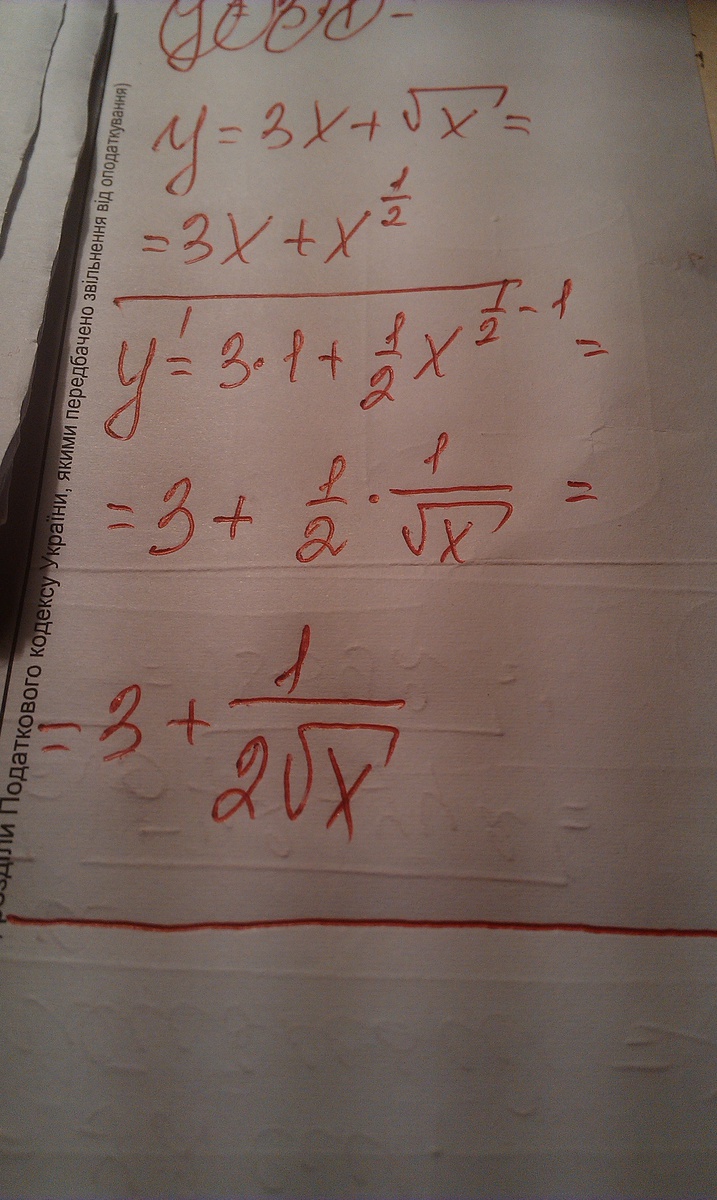 y = 3x + √x =
= 3x + x^(1/2)
y' = 3·1 + 1/2 x^(1/2 - 1) =
= 3 + 1/2 · 1/√x =
= 3 + 1/(2√x)
розділи Податкового кодексу України, якими передбачено звільнення від оподаткування)